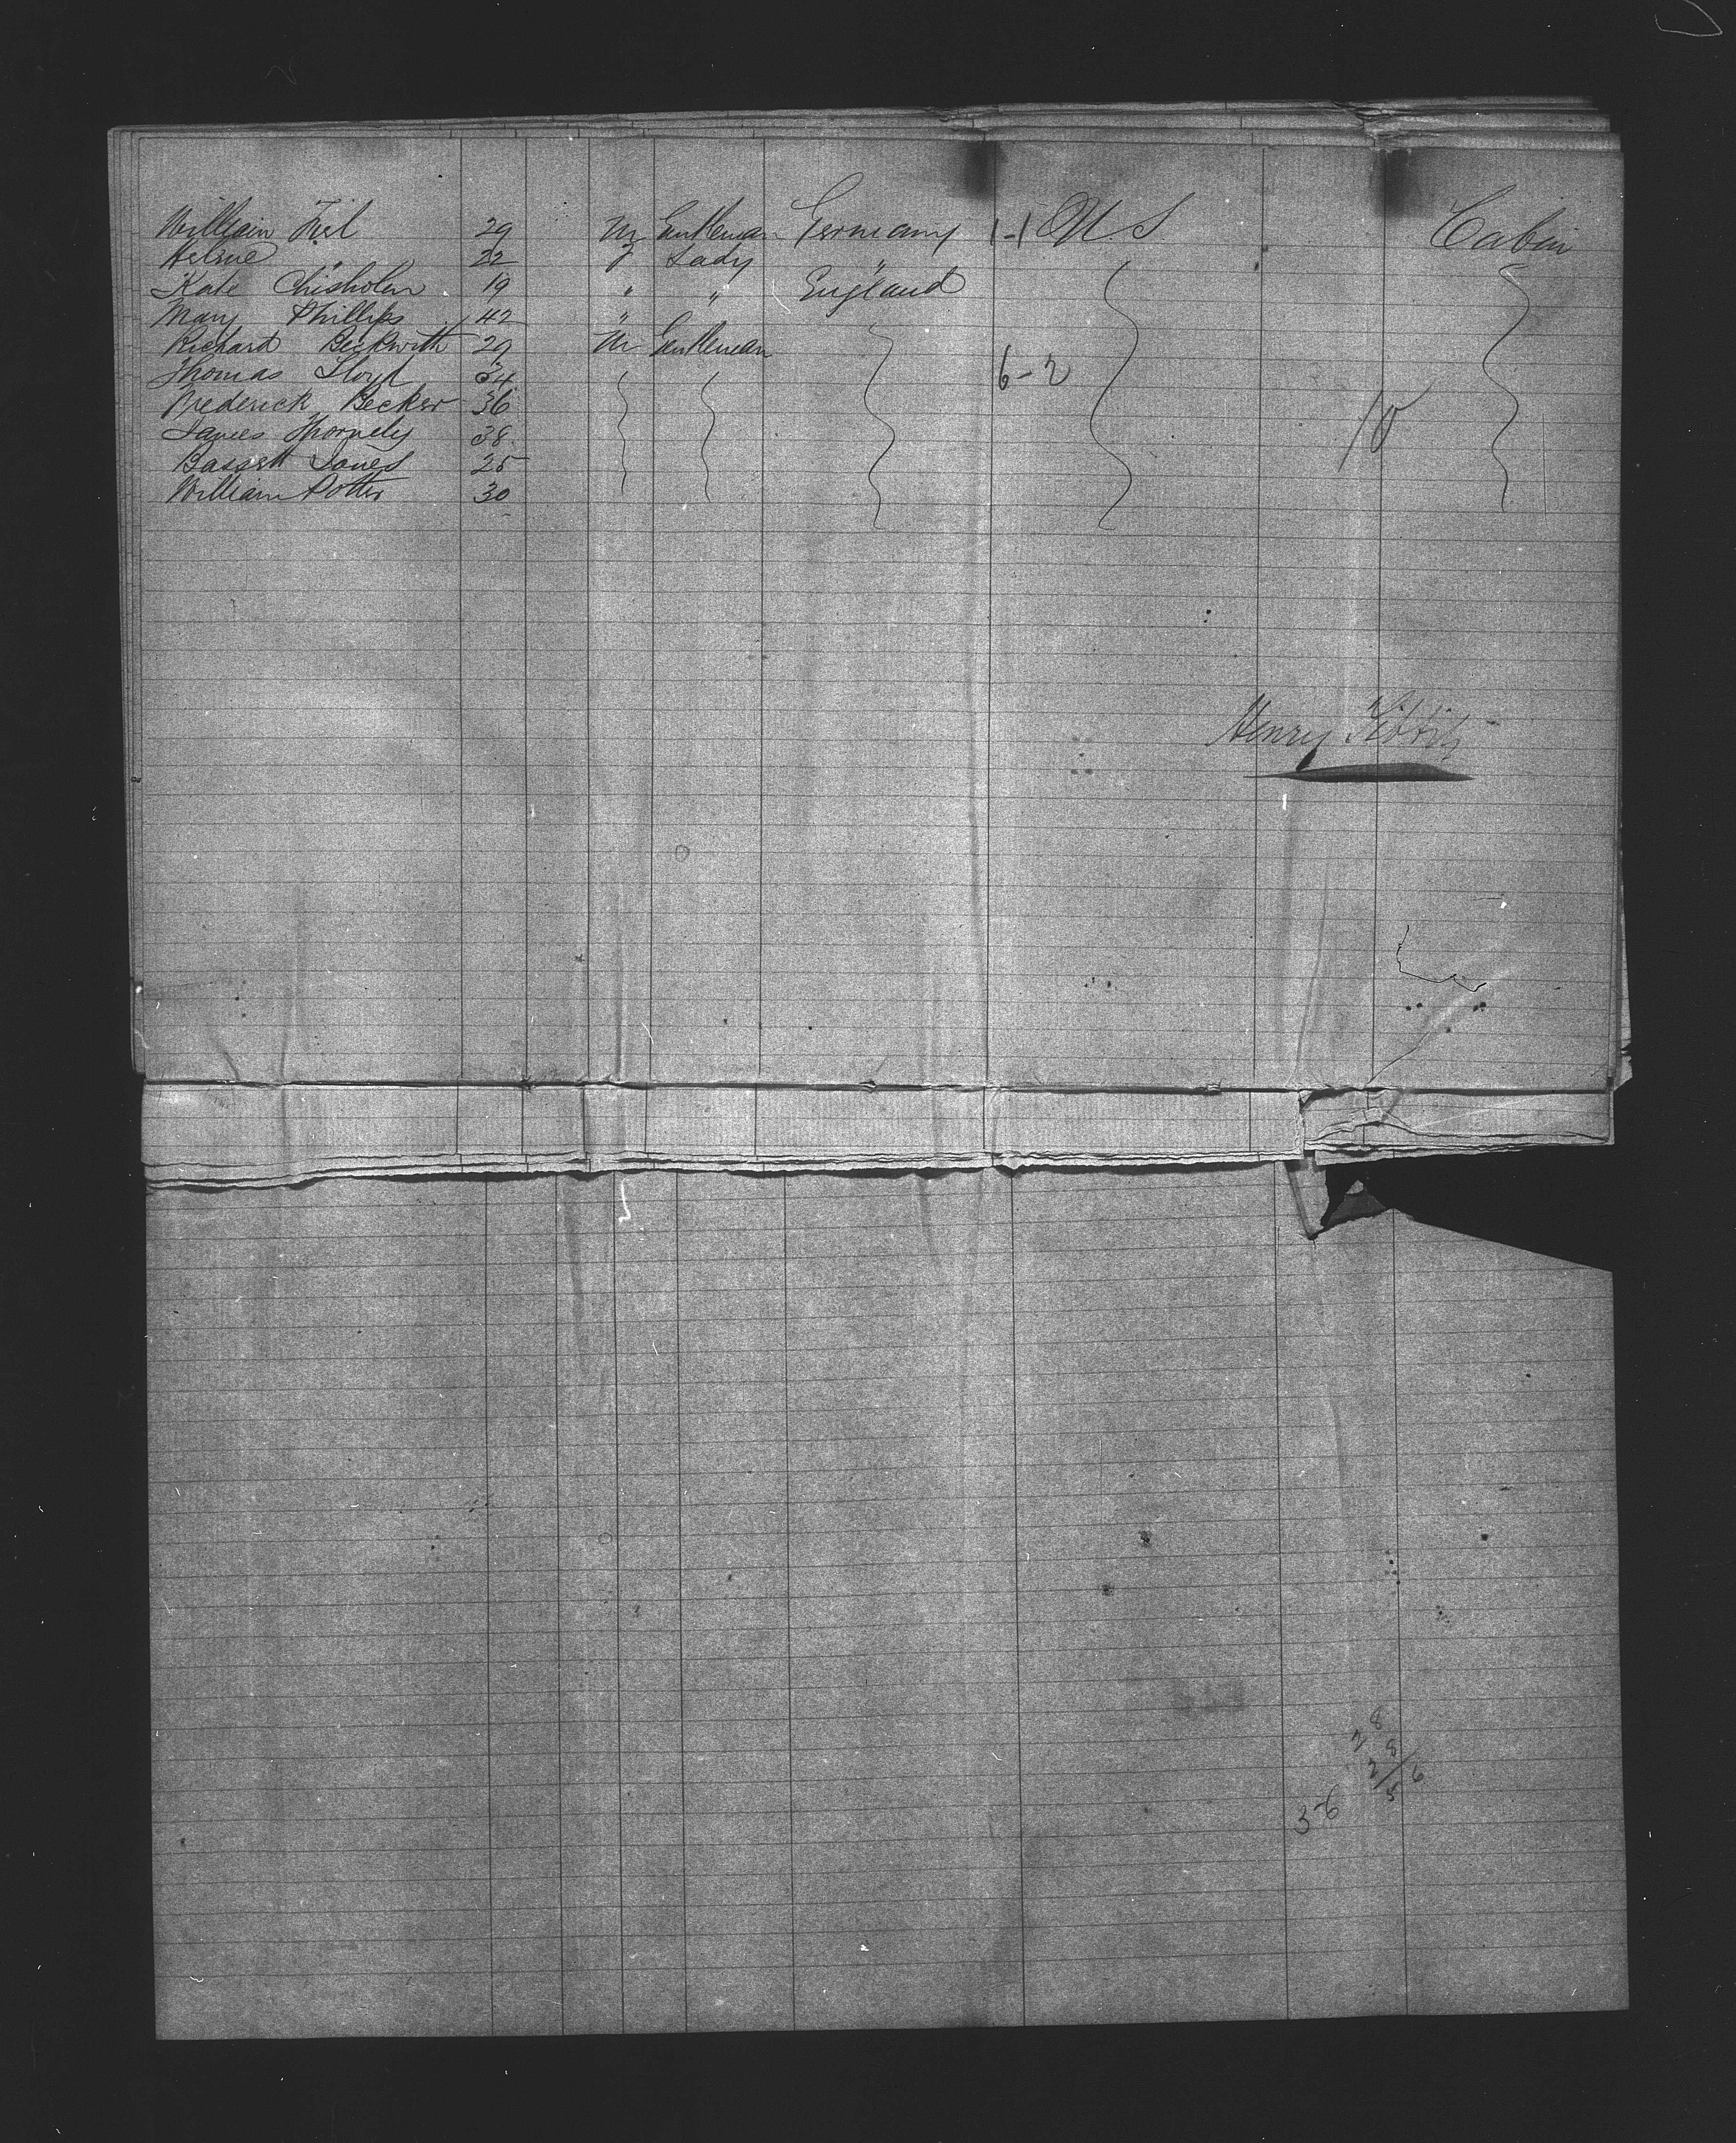 William Thiel 29 M Gentleman Germany 1-1 U.S Cabin
Helene " 22 F Lady "
Kate Chisholm 19 " " England
Mary Phillips 42 "
Richard Beckwith 29 M Gentleman
Thomas Lloyd 34 6-2
Frederick Becker 36
James Thornely 38 10
Bassett Jones 25
William Potter 30
Henry
28
8
2/6
5
3-6